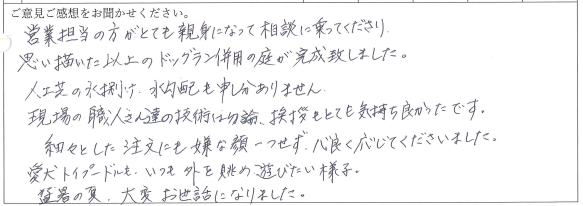 ご意見ご感想をお聞かせください。
営業担当の方がとても親身になって相談に乗ってくださり、
思い描いた以上のドッグラン併用の庭が完成致しました。
人工芝の水捌け、水勾配も申し分ありません。
現場の職人さん達の技術は勿論、挨拶もとても気持ち良かったです。
細々とした注文にも嫌な顔一つせず、心良く応じてくださいました。
愛犬トイプードルも、いつも外を眺め遊びたい様子。
猛暑の夏、大変お世話になりました。